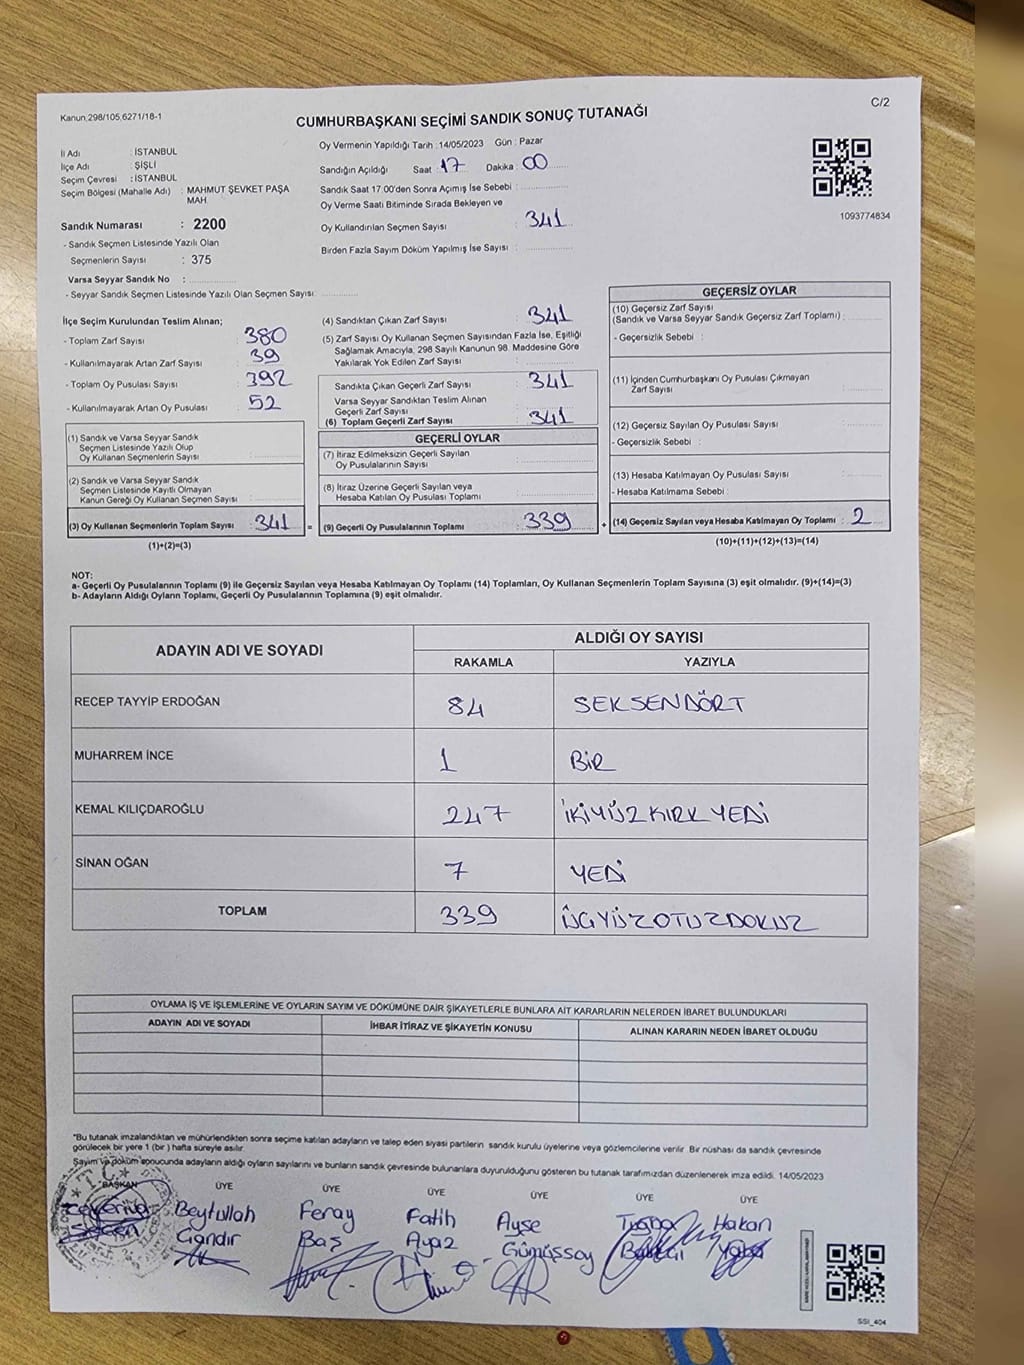 Kanun,298/105,6271/18-1
C/2
CUMHURBAŞKANI SEÇİMİ SANDIK SONUÇ TUTANAĞI
İl Adı : İSTANBUL
İlçe Adı : ŞİŞLİ
Seçim Çevresi : İSTANBUL
Seçim Bölgesi (Mahalle Adı) : MAHMUT ŞEVKET PAŞA
MAH
Sandık Numarası : 2200
- Sandık Seçmen Listesinde Yazılı Olan
Seçmenlerin Sayısı : 375
Varsa Seyyar Sandık No :
- Seyyar Sandık Seçmen Listesinde Yazılı Olan Seçmen Sayısı:
Oy Vermenin Yapıldığı Tarih :14/05/2023 Gün : Pazar
Sandığın Açıldığı Saat :17 Dakika :00
Sandık Saat 17.00'den Sonra Açımış İse Sebebi :
Oy Verme Saati Bitiminde Sırada Bekleyen ve
Oy Kullandırılan Seçmen Sayısı : 341
Birden Fazla Sayım Döküm Yapılmış İse Sayısı :
1093774834
İlçe Seçim Kurulundan Teslim Alınan;
- Toplam Zarf Sayısı : 380
- Kullanılmayarak Artan Zarf Sayısı : 39
- Toplam Oy Pusulası Sayısı : 392
- Kullanılmayarak Artan Oy Pusulası : 52
(1) Sandık ve Varsa Seyyar Sandık
Seçmen Listesinde Yazılı Olup
Oy Kullanan Seçmenlerin Sayısı :
(2) Sandık ve Varsa Seyyar Sandık
Seçmen Listesinde Kayıtlı Olmayan
Kanun Gereği Oy Kullanan Seçmen Sayısı :
(3) Oy Kullanan Seçmenlerin Toplam Sayısı : 341 =
(1)+(2)=(3)
(4) Sandıktan Çıkan Zarf Sayısı : 341
(5) Zarf Sayısı Oy Kullanan Seçmen Sayısından Fazla İse, Eşitliği
Sağlamak Amacıyla, 298 Sayılı Kanunun 98. Maddesine Göre
Yakılarak Yok Edilen Zarf Sayısı :
Sandıkta Çıkan Geçerli Zarf Sayısı : 341
Varsa Seyyar Sandıktan Teslim Alınan
Geçerli Zarf Sayısı :
(6) Toplam Geçerli Zarf Sayısı : 341
GEÇERLİ OYLAR
(7) İtiraz Edilmeksizin Geçerli Sayılan
Oy Pusulalarının Sayısı :
(8) İtiraz Üzerine Geçerli Sayılan veya
Hesaba Katılan Oy Pusulası Toplamı :
(9) Geçerli Oy Pusulalarının Toplamı : 339 +
GEÇERSİZ OYLAR
(10) Geçersiz Zarf Sayısı
(Sandık ve Varsa Seyyar Sandık Geçersiz Zarf Toplamı) :
- Geçersizlik Sebebi :
(11) İçinden Cumhurbaşkanı Oy Pusulası Çıkmayan
Zarf Sayısı :
(12) Geçersiz Sayılan Oy Pusulası Sayısı :
- Geçersizlik Sebebi :
(13) Hesaba Katılmayan Oy Pusulası Sayısı :
- Hesaba Katılmama Sebebi :
(14) Geçersiz Sayılan veya Hesaba Katılmayan Oy Toplamı : 2
(10)+(11)+(12)+(13)=(14)
NOT:
a- Geçerli Oy Pusulalarının Toplamı (9) ile Geçersiz Sayılan veya Hesaba Katılmayan Oy Toplamı (14) Toplamları, Oy Kullanan Seçmenlerin Toplam Sayısına (3) eşit olmalıdır. (9)+(14)=(3)
b- Adayların Aldığı Oyların Toplamı, Geçerli Oy Pusulalarının Toplamına (9) eşit olmalıdır.
ADAYIN ADI VE SOYADI ALDIĞI OY SAYISI
RAKAMLA YAZIYLA
RECEP TAYYİP ERDOĞAN 84 SEKSENDÖRT
MUHARREM İNCE 1 BİR
KEMAL KILIÇDAROĞLU 247 İKİYÜZKIRKYEDİ
SİNAN OĞAN 7 YEDİ
TOPLAM 339 ÜÇYÜZOTUZDOKUZ
OYLAMA İŞ VE İŞLEMLERİNE VE OYLARIN SAYIM VE DÖKÜMÜNE DAİR ŞİKAYETLERLE BUNLARA AİT KARARLARIN NELERDEN İBARET BULUNDUKLARI
ADAYIN ADI VE SOYADI İHBAR İTİRAZ VE ŞİKAYETİN KONUSU ALINAN KARARIN NEDEN İBARET OLDUĞU
*Bu tutanak imzalandıktan ve mühürlendikten sonra seçime katılan adayların ve talep eden siyasi partilerin sandık kurulu üyelerine veya gözlemcilerine verilir. Bir nüshası da sandık çevresinde
görülecek bir yere 1 (bir) hafta süreyle asılır.
Sayım ve döküm sonucunda adayların aldığı oyların sayılarını ve bunların sandık çevresinde bulunanlara duyurulduğunu gösteren bu tutanak tarafımızdan düzenlenerek imza edildi. 14/05/2023
BAŞKAN ÜYE ÜYE ÜYE ÜYE ÜYE ÜYE
Beytullah Feray Fatih Ayşe Tuğba Hakan
Gandır Baş Ayaz Gümüşsoy
T.C.
SSI_404